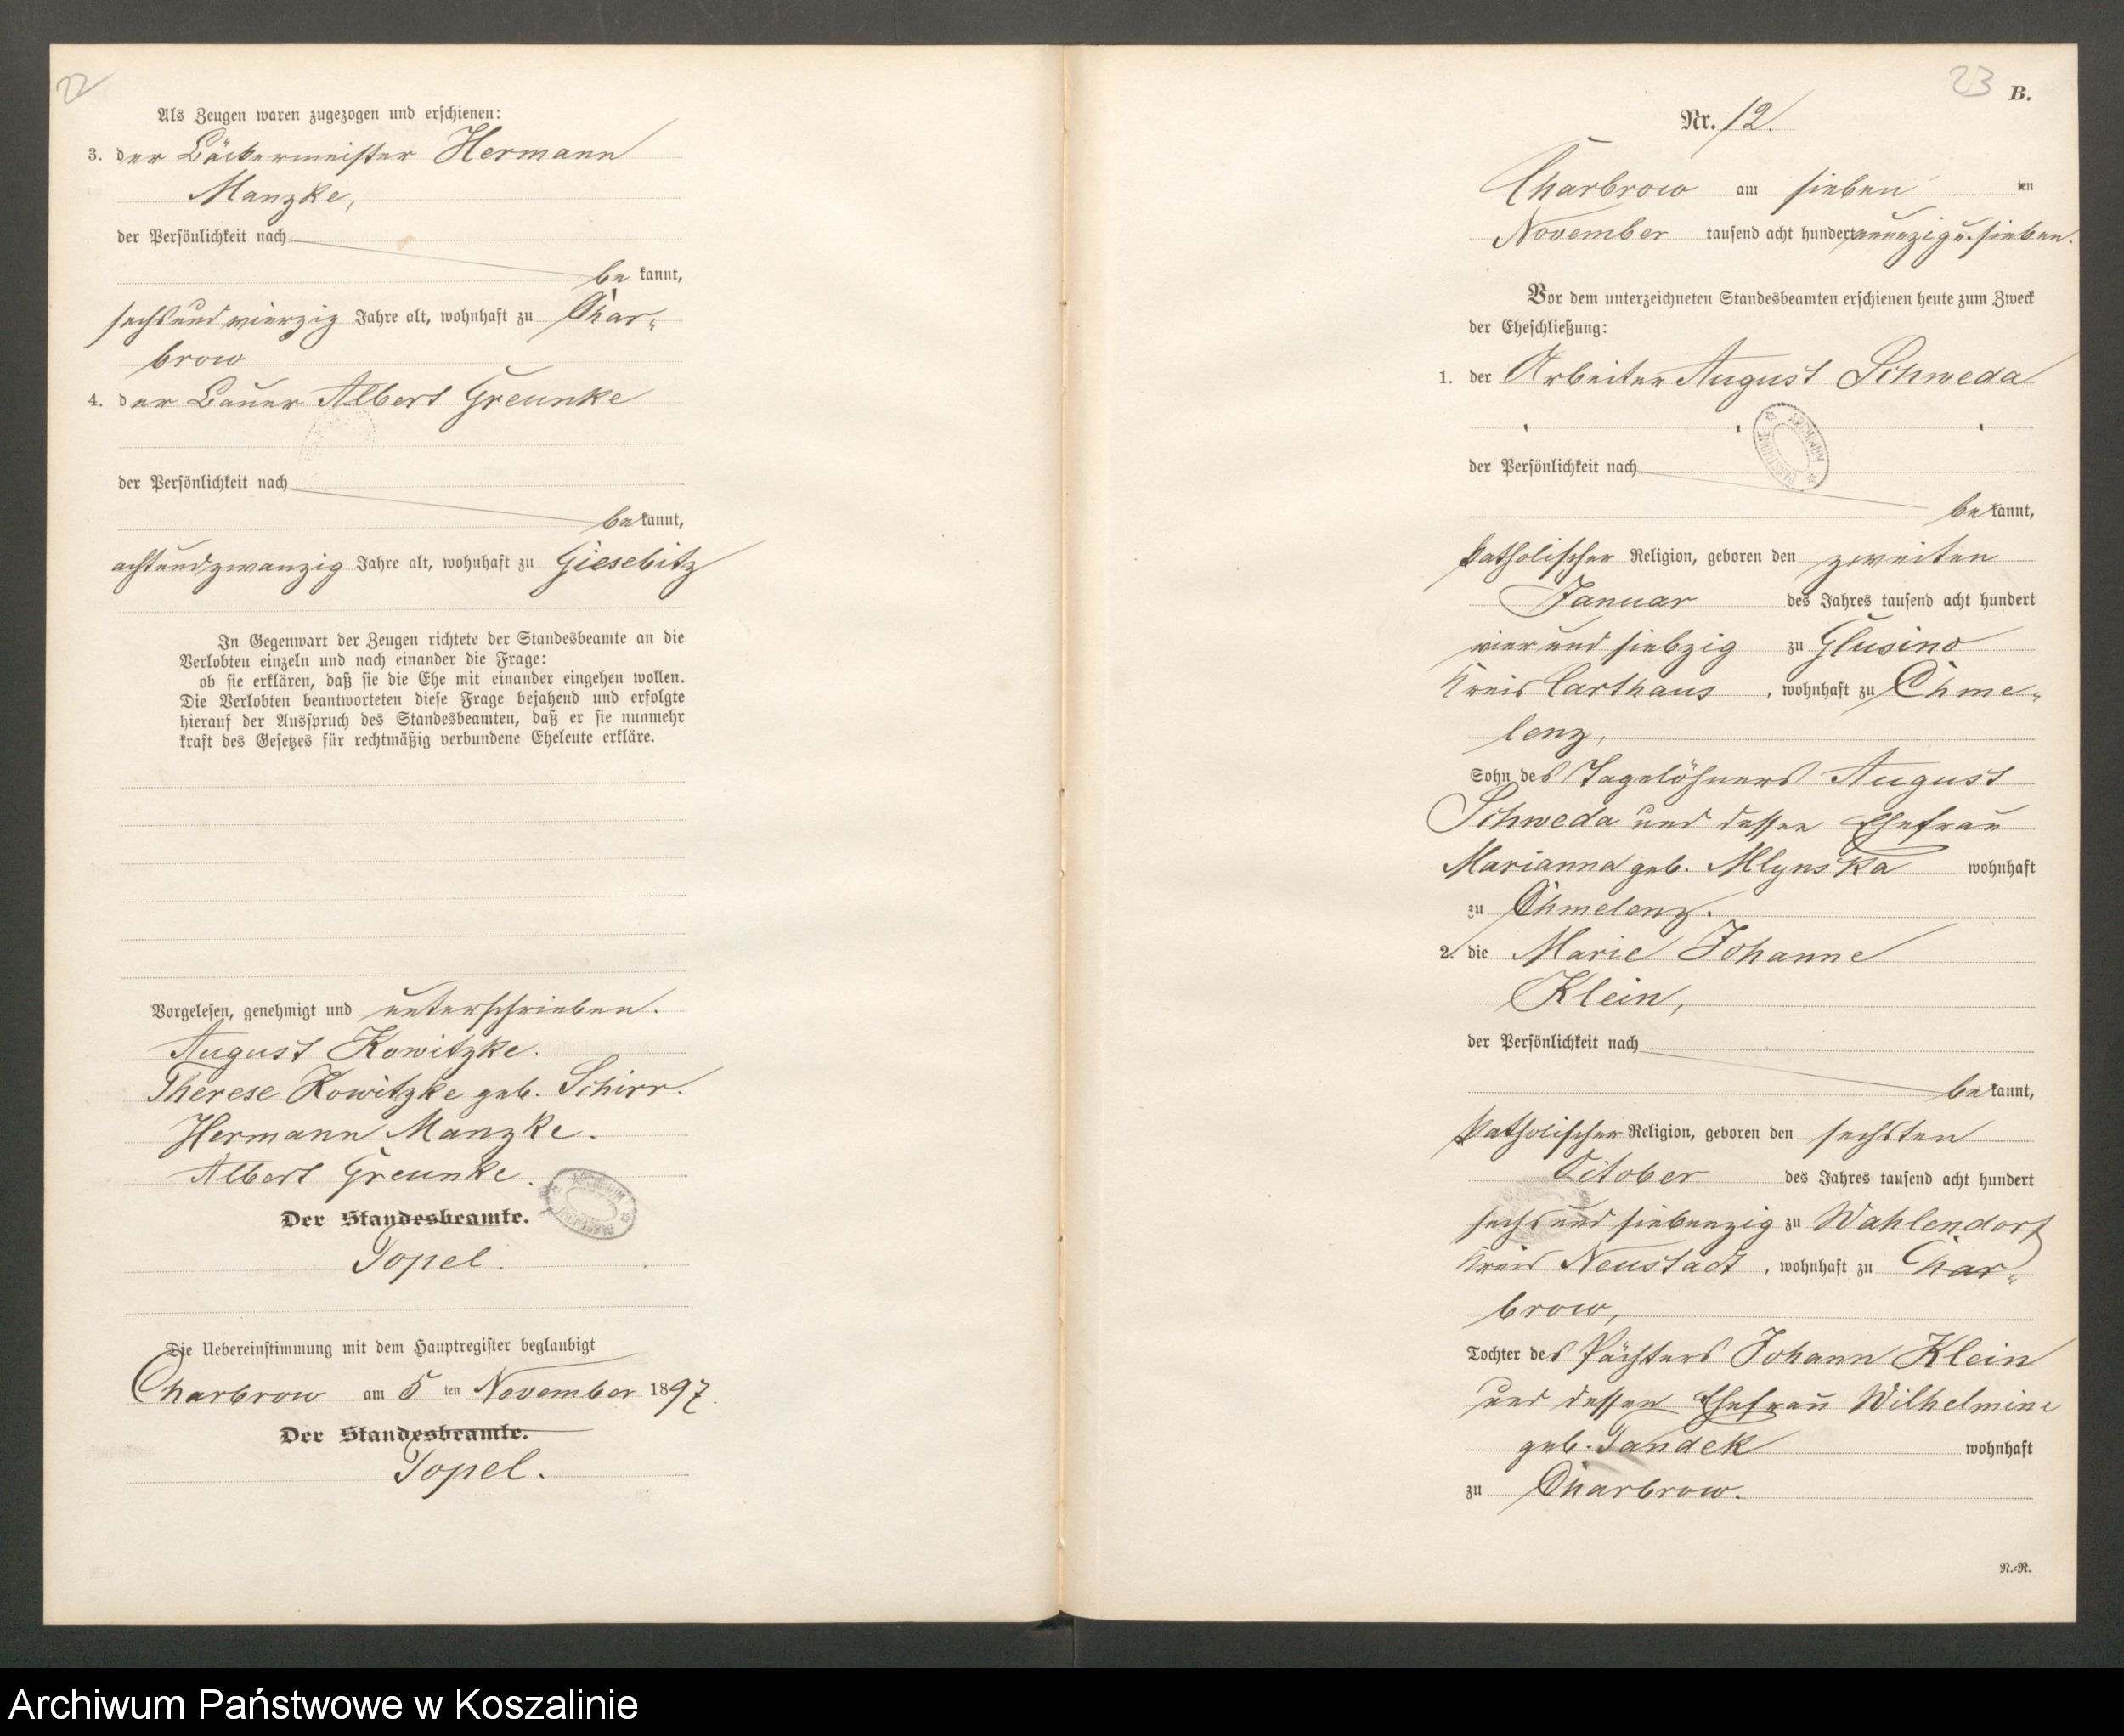 22
Als Zeugen waren zugezogen und erschienen:
3. der Bäckermeister Hermann
Manzke,
der Persönlichkeit nach
be kannt,
sechsundvierzig Jahre alt, wohnhaft zu Char-
brow
4. der Bauer Albert Greunke
der Persönlichkeit nach
bekannt,
achtundzwanzig Jahre alt, wohnhaft zu Giesebitz
In Gegenwart der Zeugen richtete der Standesbeamte an die
Verlobten einzeln und nach einander die Frage:
ob sie erklären, daß sie die Ehe mit einander eingehen wollen.
Die Verlobten beantworteten diese Frage bejahend und erfolgte
hierauf der Ausspruch des Standesbeamten, daß er sie nunmehr
kraft des Gesetzes für rechtmäßig verbundene Eheleute erkläre.
Vorgelesen, genehmigt und unterschrieben.
August Kowitzke.
Therese Kowitzke geb. Schirr.
Hermann Manzke.
Albert Greunke.
Der Standesbeamte.
Topel.
Die Uebereinstimmung mit dem Hauptregister beglaubigt
Charbrow am 5 ten November 1897.
Der Standesbeamte.
Topel.
23
B.
Nr. 12.
Charbrow am sieben ten
November tausend acht hundert neunzig u. sieben.
Vor dem unterzeichneten Standesbeamten erschienen heute zum Zweck
der Eheschließung:
1. der Arbeiter August Schweda
ARCHIWUM PAŃSTWOWE
der Persönlichkeit nach
bekannt,
katholischer Religion, geboren den zweiten
Januar des Jahres tausend acht hundert
vier und siebzig zu Glusino
Kreis Carthaus, wohnhaft zu Chme-
lenz,
Sohn des Tagelöhners August
Schweda und dessen Ehefrau
Marianna geb. Mlynska wohnhaft
zu Chmelenz.
2. die Marie Johanne
Klein,
der Persönlichkeit nach
bekannt,
katholischer Religion, geboren den sechsten
October des Jahres tausend acht hundert
sechs und siebenzig zu Wahlendorf
Kreis Neustadt, wohnhaft zu Char-
brow,
Tochter des Pächters Johann Klein
und dessen Ehefrau Wilhelmine
geb. Tandek wohnhaft
zu Charbrow.
N.-R.
Archiwum Państwowe w Koszalinie